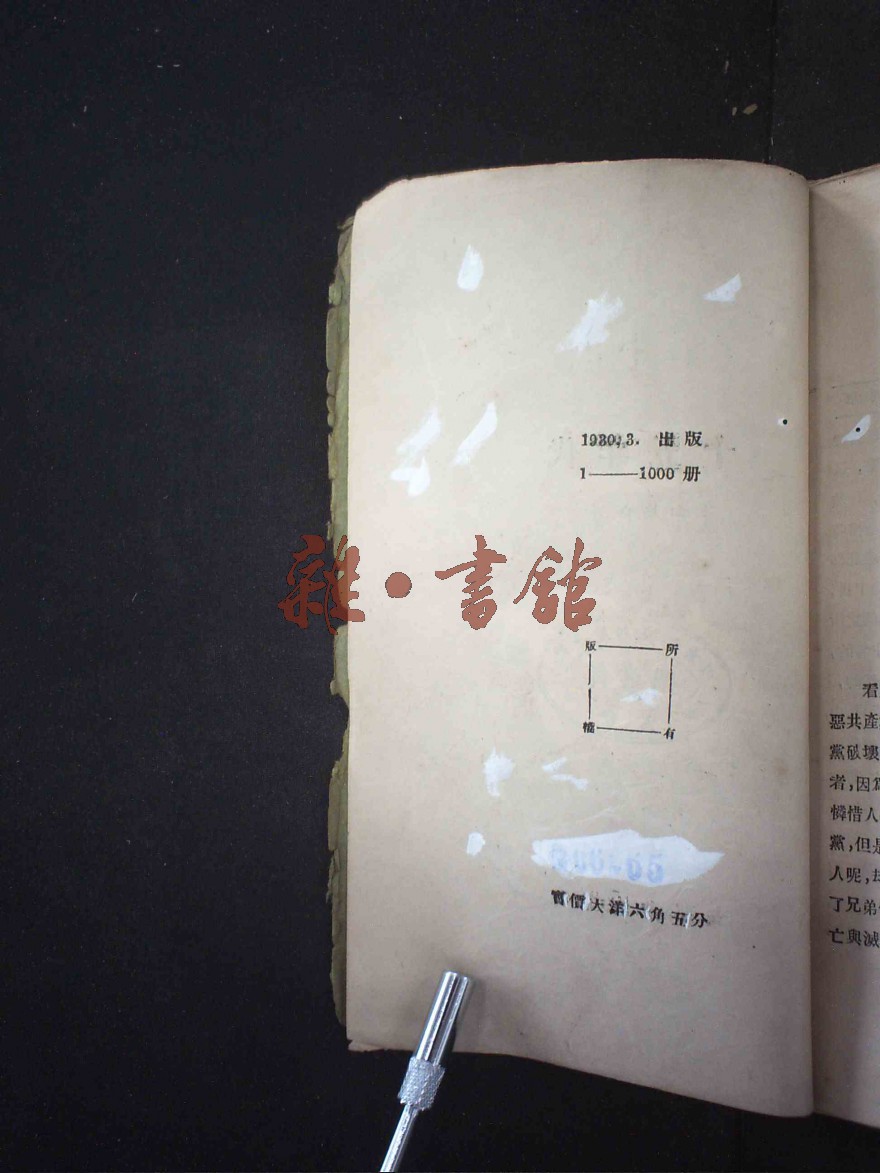 1930.3. 出版
1——1000 册
雜·書舘
版 所
權 有
實價大洋六角五分
看
惡共產
黨破壞
者,因爲
憐惜人
黨,但是
人呢,却
了兄弟
亡與滅